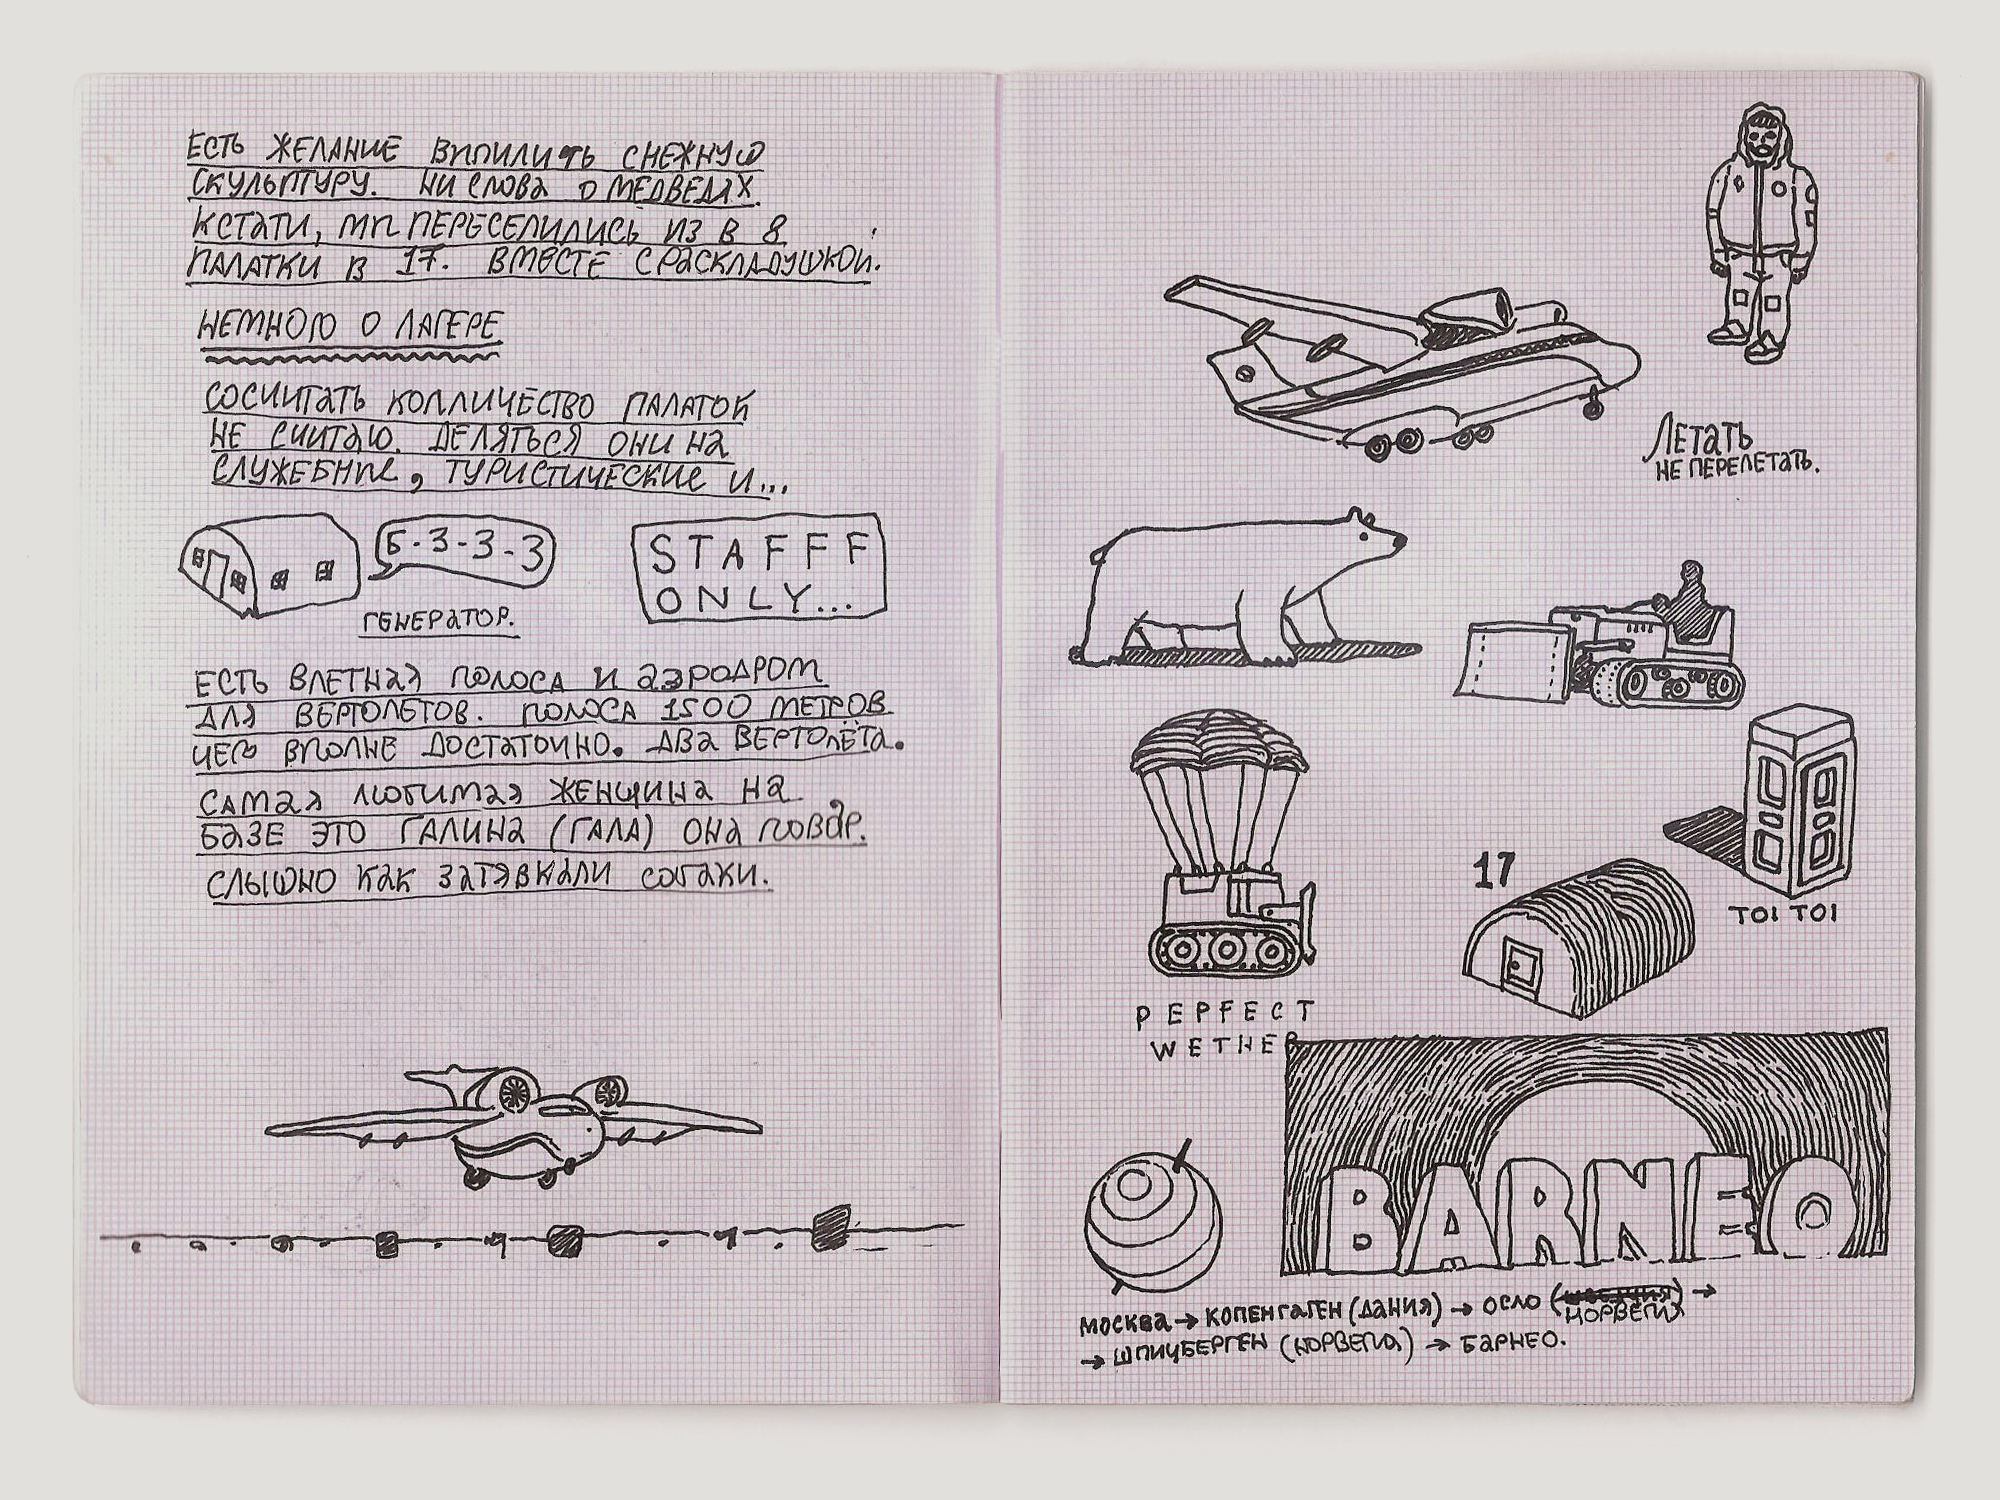 ЕСТЬ ЖЕЛАНИЕ ВЫПИЛИТЬ СНЕЖНУЮ
СКУЛЬПТУРУ. НИ СЛОВА О МЕДВЕДЯХ.
КСТАТИ, МЫ ПЕРЕСЕЛИЛИСЬ ИЗ В 8
ПАЛАТКИ В 17. ВМЕСТЕ С РАСКЛАДУШКОЙ.
НЕМНОГО О ЛАГЕРЕ
СОСЧИТАТЬ КОЛЛИЧЕСТВО ПАЛАТОК
НЕ СЧИТАЮ. ДЕЛЯТЬСЯ ОНИ НА
СЛУЖЕБНЫЕ, ТУРИСТИЧЕСКИЕ И...
Б-З-З-З
ГЕНЕРАТОР.
STAFFF
ONLY...
ЕСТЬ ВЛЕТНАЯ ПОЛОСА И АЭРОДРОМ
ДЛЯ ВЕРТОЛЕТОВ. ПОЛОСА 1500 МЕТРОВ
ЧЕГО ВПОЛНЕ ДОСТАТОЧНО. ДВА ВЕРТОЛЁТА.
САМАЯ ЛЮБИМАЯ ЖЕНЩИНА НА
БАЗЕ ЭТО ГАЛИНА (ГАЛА) ОНА ПОВАР.
СЛЫШНО КАК ЗАТЯВКАЛИ СОБАКИ.
ЛЕТАТЬ
НЕ ПЕРЕЛЕТАТЬ.
17
TOI TOI
PEPFECT
WETHER
BARNEO
МОСКВА → КОПЕНГАГЕН (ДАНИЯ) → ОСЛО (НОРВЕГИЯ) →
→ ШПИЦБЕРГЕН (НОРВЕГИЯ) → БАРНЕО.